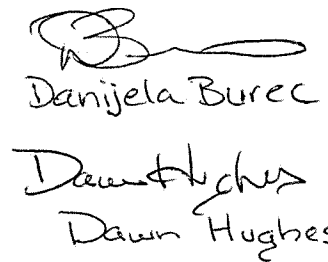 Danijela Burec
Dawn Hughes
Dawn Hughes